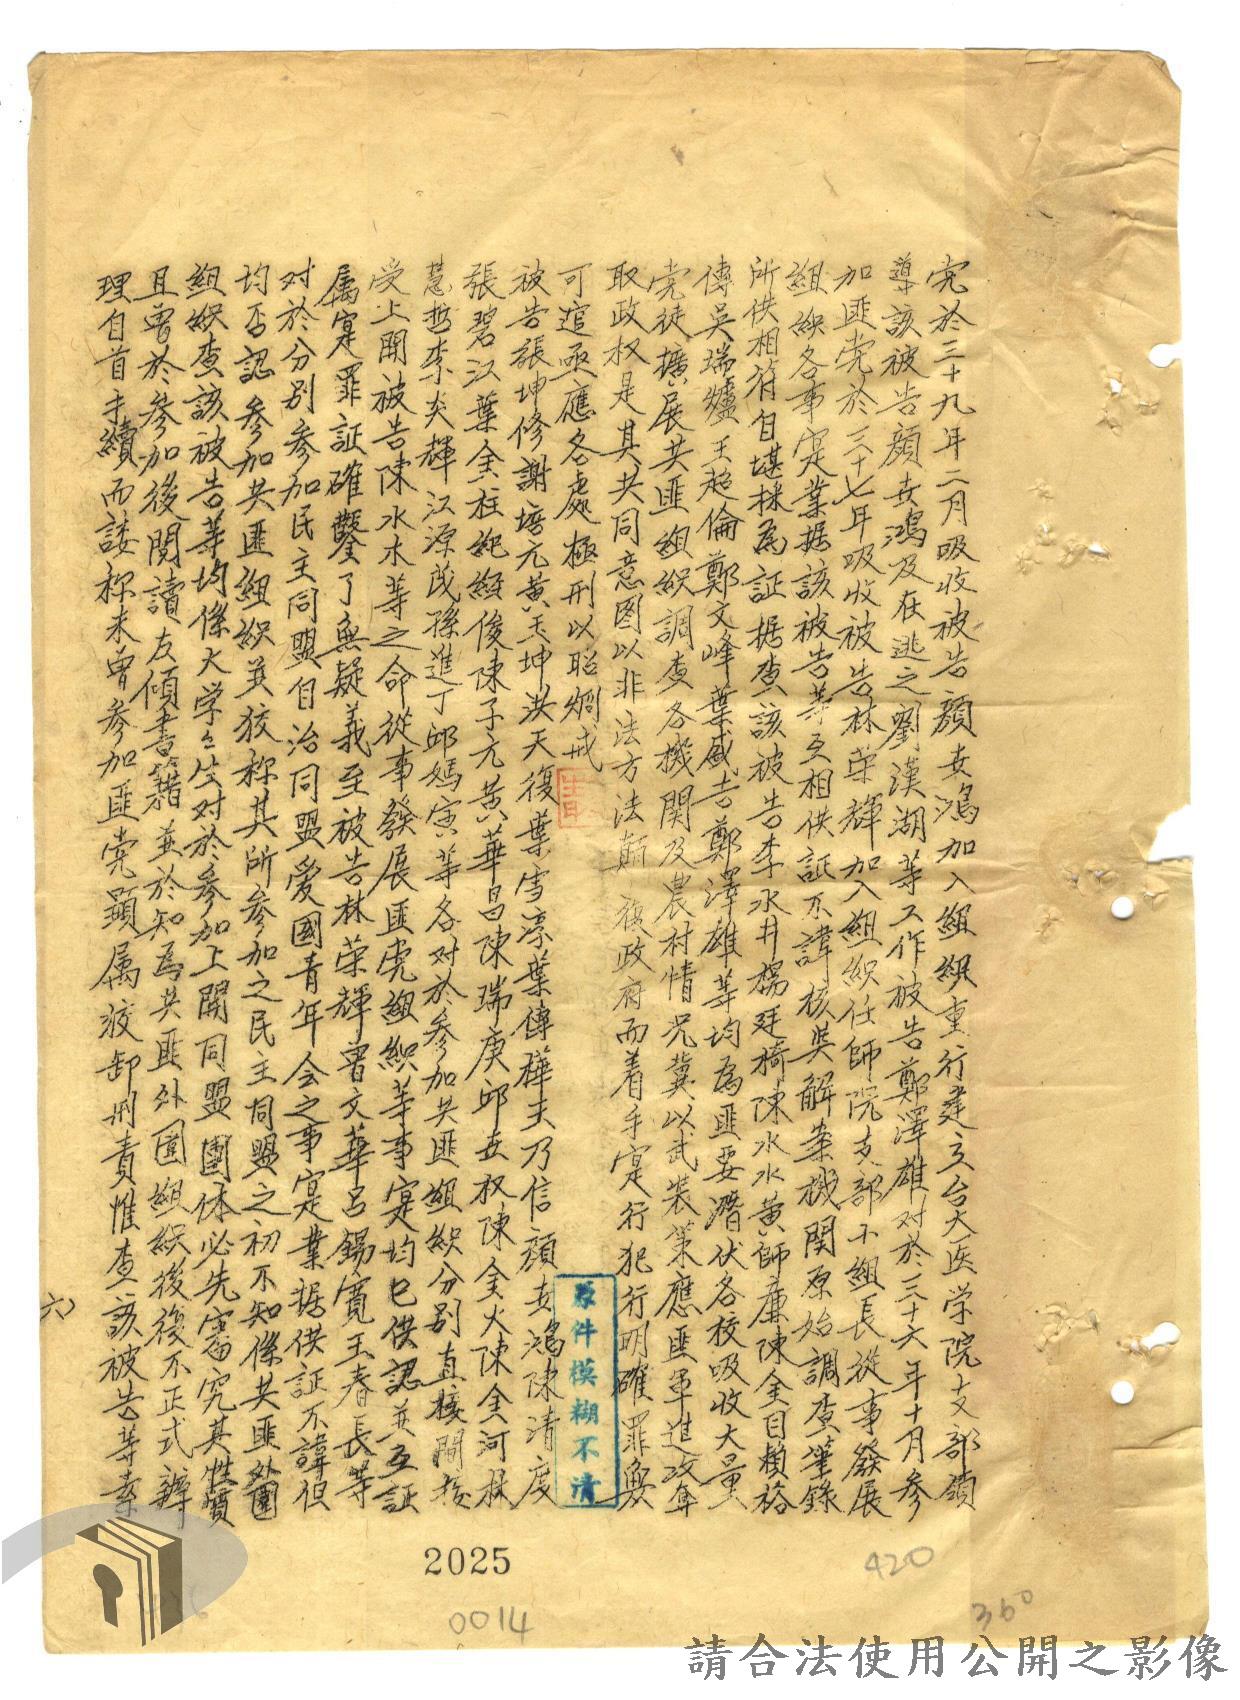 党於三十九年二月吸收被告顏世鴻加入組織重行建立台大医学院支部領
導該被告顏世鴻及在逃之劉漢湖等工作被告鄭澤雄对於三十六年十月参
加匪党於三十七年吸收被告林荣輝加入組織任師院支部小組長從事發展
組織各事寔業据該被告等互相供証不諱核與解案機関原始調查筆錄
所供相符自堪採為証据查該被告李水井楊廷椅陳水木黄師廉陳金目賴裕
傳吳瑞爐王超倫鄭文峰葉盛吉鄭澤雄等均為匪要潛伏各校吸收大量
党徒擴展共匪組織調查各機関及農村情况冀以武装策應匪軍進攻奪
取政权是其共同意图以非法方法顛覆政府而着手寔行犯行明確罪無
可逭亟應各處極刑以昭烱戒
被告張坤修謝培元黄玉坤洪天復葉雪淳葉傳樺夫乃信顏世鴻陳清度
張碧江葉金柱紀經俊陳子元黄華昌陳瑞庚邱世权陳金火陳金河林
慧哲李炎輝江源茂孫進丁邱媽寅等各对於参加共匪組織分别直接間接
受上開被告陳水木等之命從事發展匪党組織等事寔均已供認並互証
属寔罪証確鑿了無疑義至被告林荣輝曾文華呂錫寬王春長等
对於分别参加民主同盟自治同盟愛國青年会之事寔業据供証不諱但
均否認参加共匪組織並狡称其所参加之民主同盟之初不知係共匪外圍
組織查該被告等均係大学々生对於参加上開同盟團体必先審究其性質
且曾於参加後閱讀左傾書籍並於知為共匪外圍組織後復不正式辦
理自首手續而諉称未曾参加匪党顯属狡卸刑責惟查該被告等素
六
生日
原件模糊不清
2025
420
0014
360
請合法使用公開之影像